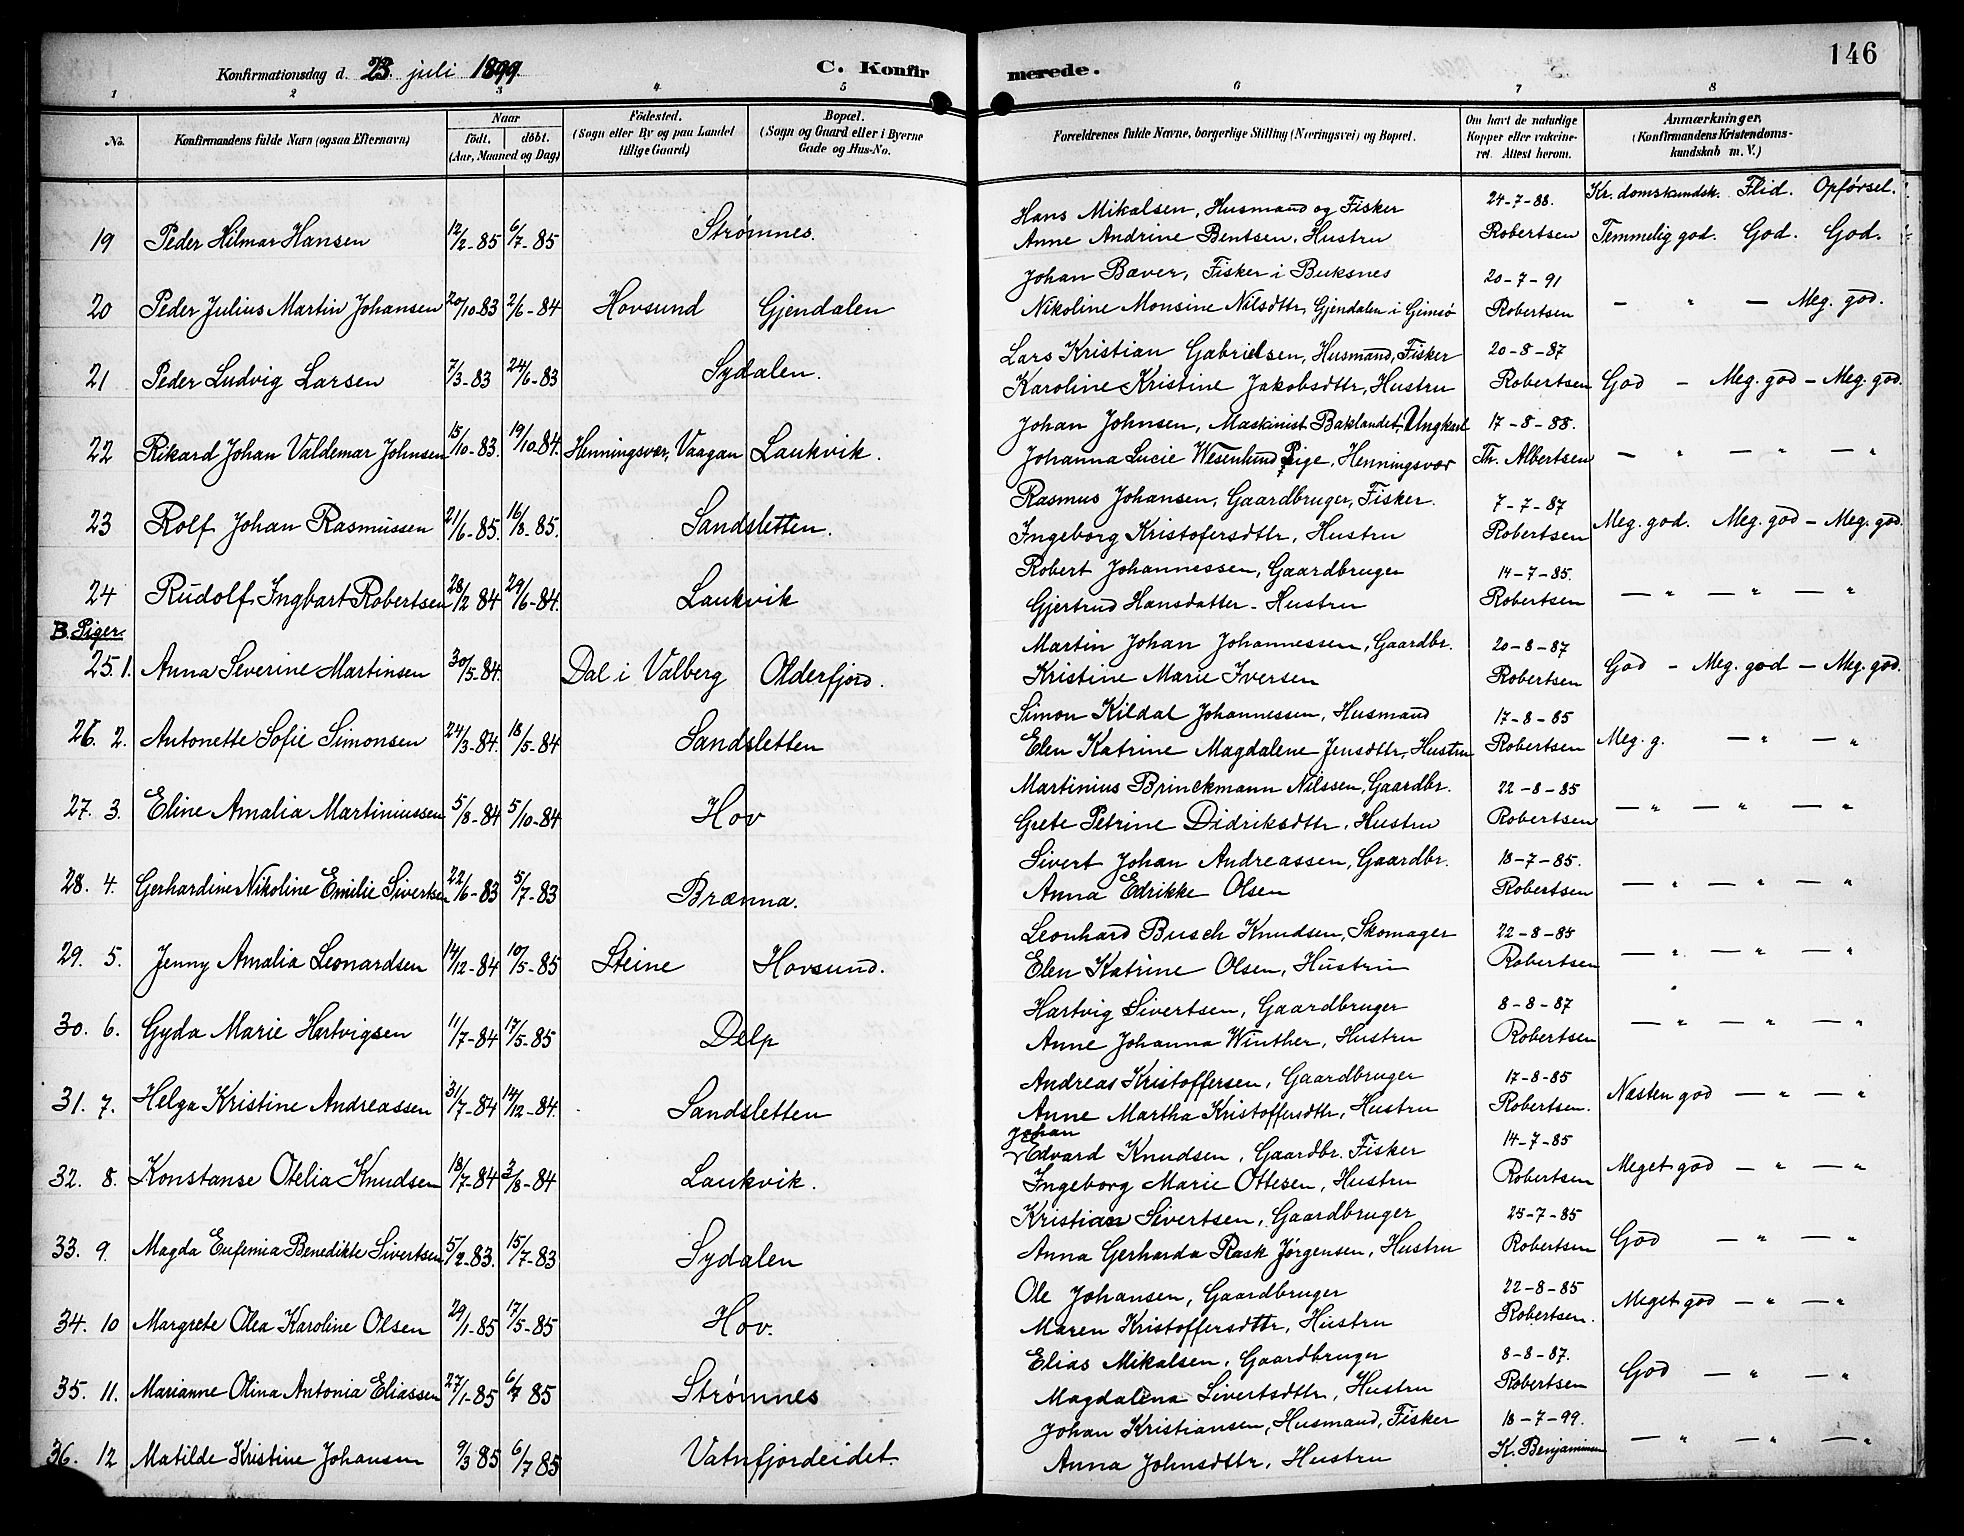 146
Konfirmationsdag d. 23. juli 1899. C. Konfirmerede.
1 2 3 4 5 6 7 8
No. Konfirmandens fulde Navn (ogsaa Efternavn) Naar födt. döbt. (Aar, Maaned og Dag) Födested. (Sogn eller By og paa Landet tillige Gaard) Bopæl. (Sogn og Gaard eller i Byerne Gade og Hus-No. Forældrenes fulde Navne, borgerlige Stilling (Næringsvei) og Bopæl. Om havt de naturlige Kopper eller vakcineret. Attest herom. Anmærkninger. (Konfirmandens Kristendomskundskab m. V.)
Kr.domskundsk. Flid. Opførsel.
Hans Mikalsen, Husmand og Fisker 24-7-88.
19 Peder Hilmar Hansen 12/2-85 6/7-85 Strømnes. Anne Andrine Bentsen, Hustru Robertsen Temmelig god. God. God.
Johan Bæver, Fisker i Buksnes 20-7-91
20 Peder Julius Martin Johansen 20/10-83 2/6-84 Hovsund Gjendalen Nikoline Monsine Nilsdttr Gjendalen i Gimsø Robertsen — " — Meg. god.
Lars Kristian Gabrielsen, Husmand, Fisker 20-8-87
21 Peder Ludvig Larsen 7/3-83 24/6-83 Sydalen. Karoline Kristine Jakobsdttr, Hustru Robertsen God - Meg. god - Meg. god.
Johan Johnsen, Maskinist Baklandet, Ungkarl 17-8-88.
22 Rikard Johan Valdemar Johnsen 15/10-83. 19/10-84. Henningsvær, Vaagan Laukvik. Johanna Lucie Wesenlund Pige, Henningsvær Th. Albertsen — " — " — "
Rasmus Johansen, Gaardbruger, Fisker. 7-7-87
23 Rolf Johan Rasmussen 21/6-85. 16/8-85. Sandsletten. Ingeborg Kristofersdttr, Hustru Robertsen Meg. god. Meg. god - Meg. god.
Robert Johannessen, Gaardbruger 14-7-85.
24 Rudolf Ingbart Robertsen 28/2 84 29/6-84. Laukvik Gjertrud Hansdatter - Hustru Robertsen — " — " — "
B. Piger.
Martin Johan Johannessen, Gaardbr. 20-8-87
25. 1. Anna Severine Martinsen 30/5-84. Dal i Valberg Olderfjord. Kristine Marie Iversen Robertsen God - Meg. god - Meg. god.
Simon Kildal Johannessen, Husmand 17-8-85
26. 2. Antonette Sofie Simonsen 24/3-84. 18/5-84 Sandsletten Elen Katrine Magdalene Jensdttr, Hustru Robertsen Meg. g. — " — "
Martinius Brinckmann Nilssen, Gaardbr. 22-8-85
27. 3. Eline Amalia Martiniussen 5/8-84 5/10-84 Hov Grete Petrine Didriksdttr, Hustru Robertsen — " — " — "
Sivert Johan Andreassen, Gaardbr. 18-7-85.
28. 4. Gerhardine Nikoline Emilie Sivertsen 22/6-83 5/7-83 Brænna. Anna Edrikke Olsen Robertsen — " — " — "
Leonhard Busch Knudsen, Skomager 22-8-85
29. 5. Jenny Amalia Leonardsen 14/12-84 10/5-85 Steine Hovsund. Elen Katrine Olsen, Hustru Robertsen — " — " — "
Hartvig Sivertsen, Gaardbruger 8-8-87
30. 6. Gyda Marie Hartvigsen 11/7-84 17/5-85 Delp Anne Johanna Winther, Hustru Robertsen — " — " — "
Andreas Kristoffersen, Gaardbruger 17-8-85
31. 7. Helga Kristine Andreassen 31/7-84 14/12-84. Sandsletten Anne Martha Kristoffersdttr, Hustru Robertsen. Næsten god — " — "
Johan
Edvard Knudsen, Gaardbr. Fisker 14-7-85
32. 8. Konstanse Otelia Knudsen 18/7-84 3/8-84 Laukvik. Ingeborg Marie Ottesen, Hustru Robertsen Meget god — " — "
Kristian Sivertsen, Gaardbruger 25-7-85
33. 9. Magda Eufemia Benedikte Sivertsen 5/2-83. 15/7-83 Sydalen Anna Gerharda Rask Jørgensen, Hustru Robertsen God — " — "
Ole Johansen, Gaardbruger 22-8-85
34. 10 Margrete Olea Karoline Olsen 29/1-85 17/5-85 Hov. Maren Kristoffersdttr, Hustru Robertsen. Meget god — " — "
Elias Mikalsen, Gaardbruger 8-8-87.
35. 11. Marianne Olina Antonia Eliassen 27/1-85 6/7 85 Strømnes Magdalena Sivertsdttr, Hustru Robertsen God — " — "
Johan Kristiansen, Husmand, Fisker 18-7-99.
36. 12 Matilde Kristine Johansen 9/3 85 6/7 85 Vatnfjordeidet. Anna Johnsdttr, Hustru K. Benjaminsen — " — " — "